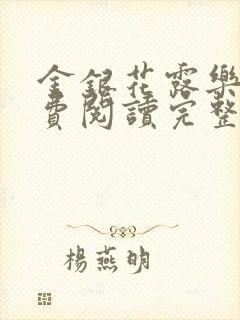 金銀花露樂
費閱讀完整
楊燕明